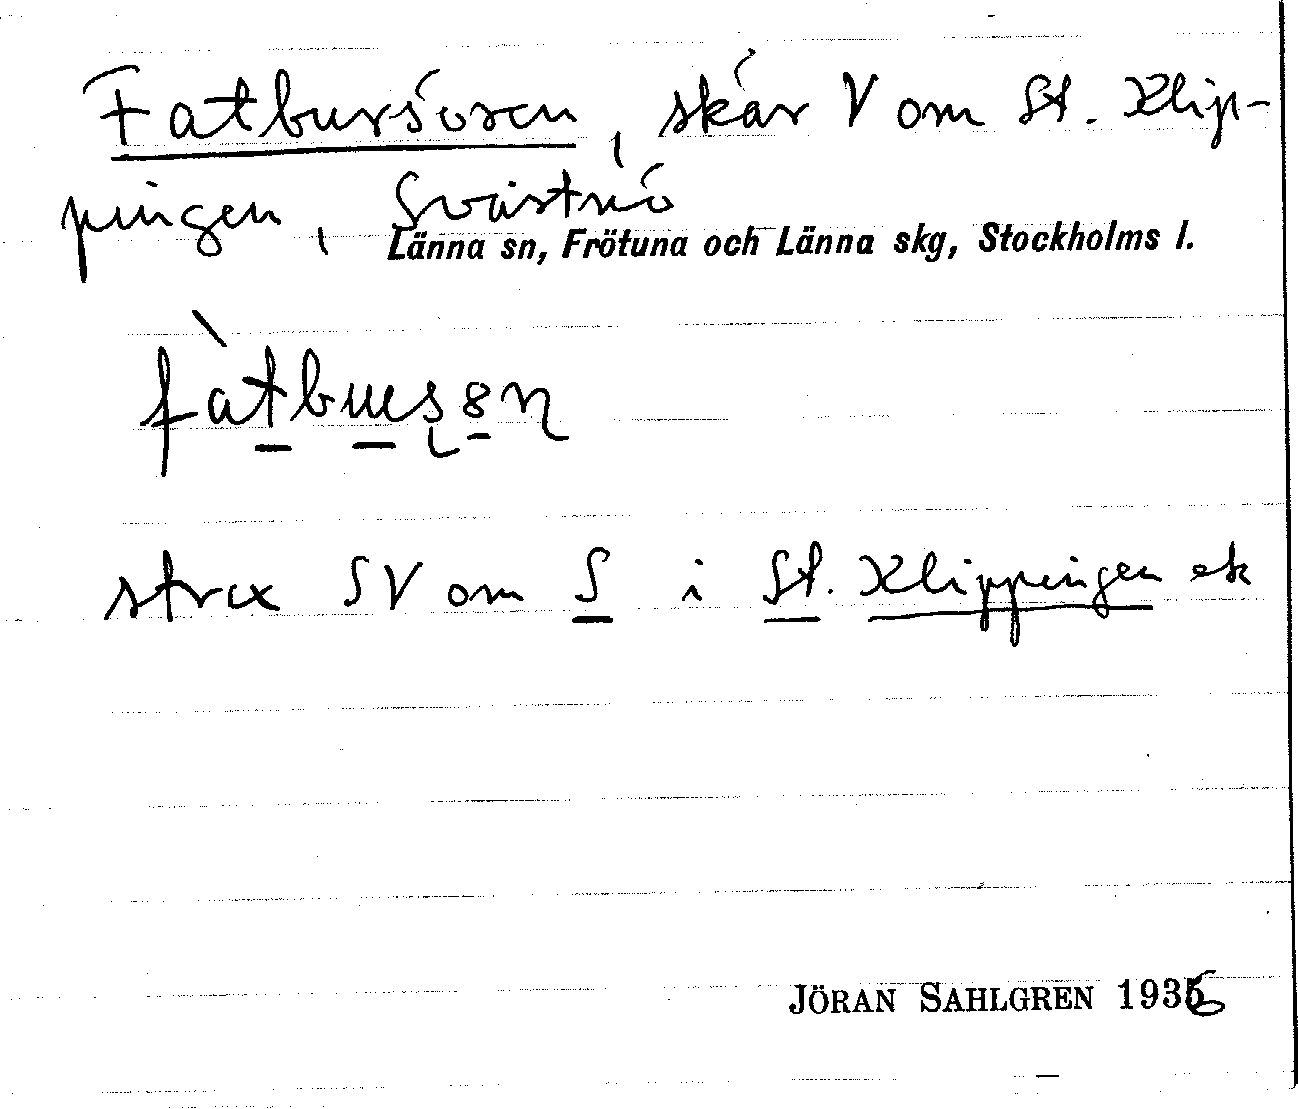 Fatbursören, skär V om St. Klip-
pingen, Svartnö
Länna sn, Frötuna och Länna skg, Stockholms l.
strax SV om S i St. Klippingen ek
JÖRAN SAHLGREN 1936